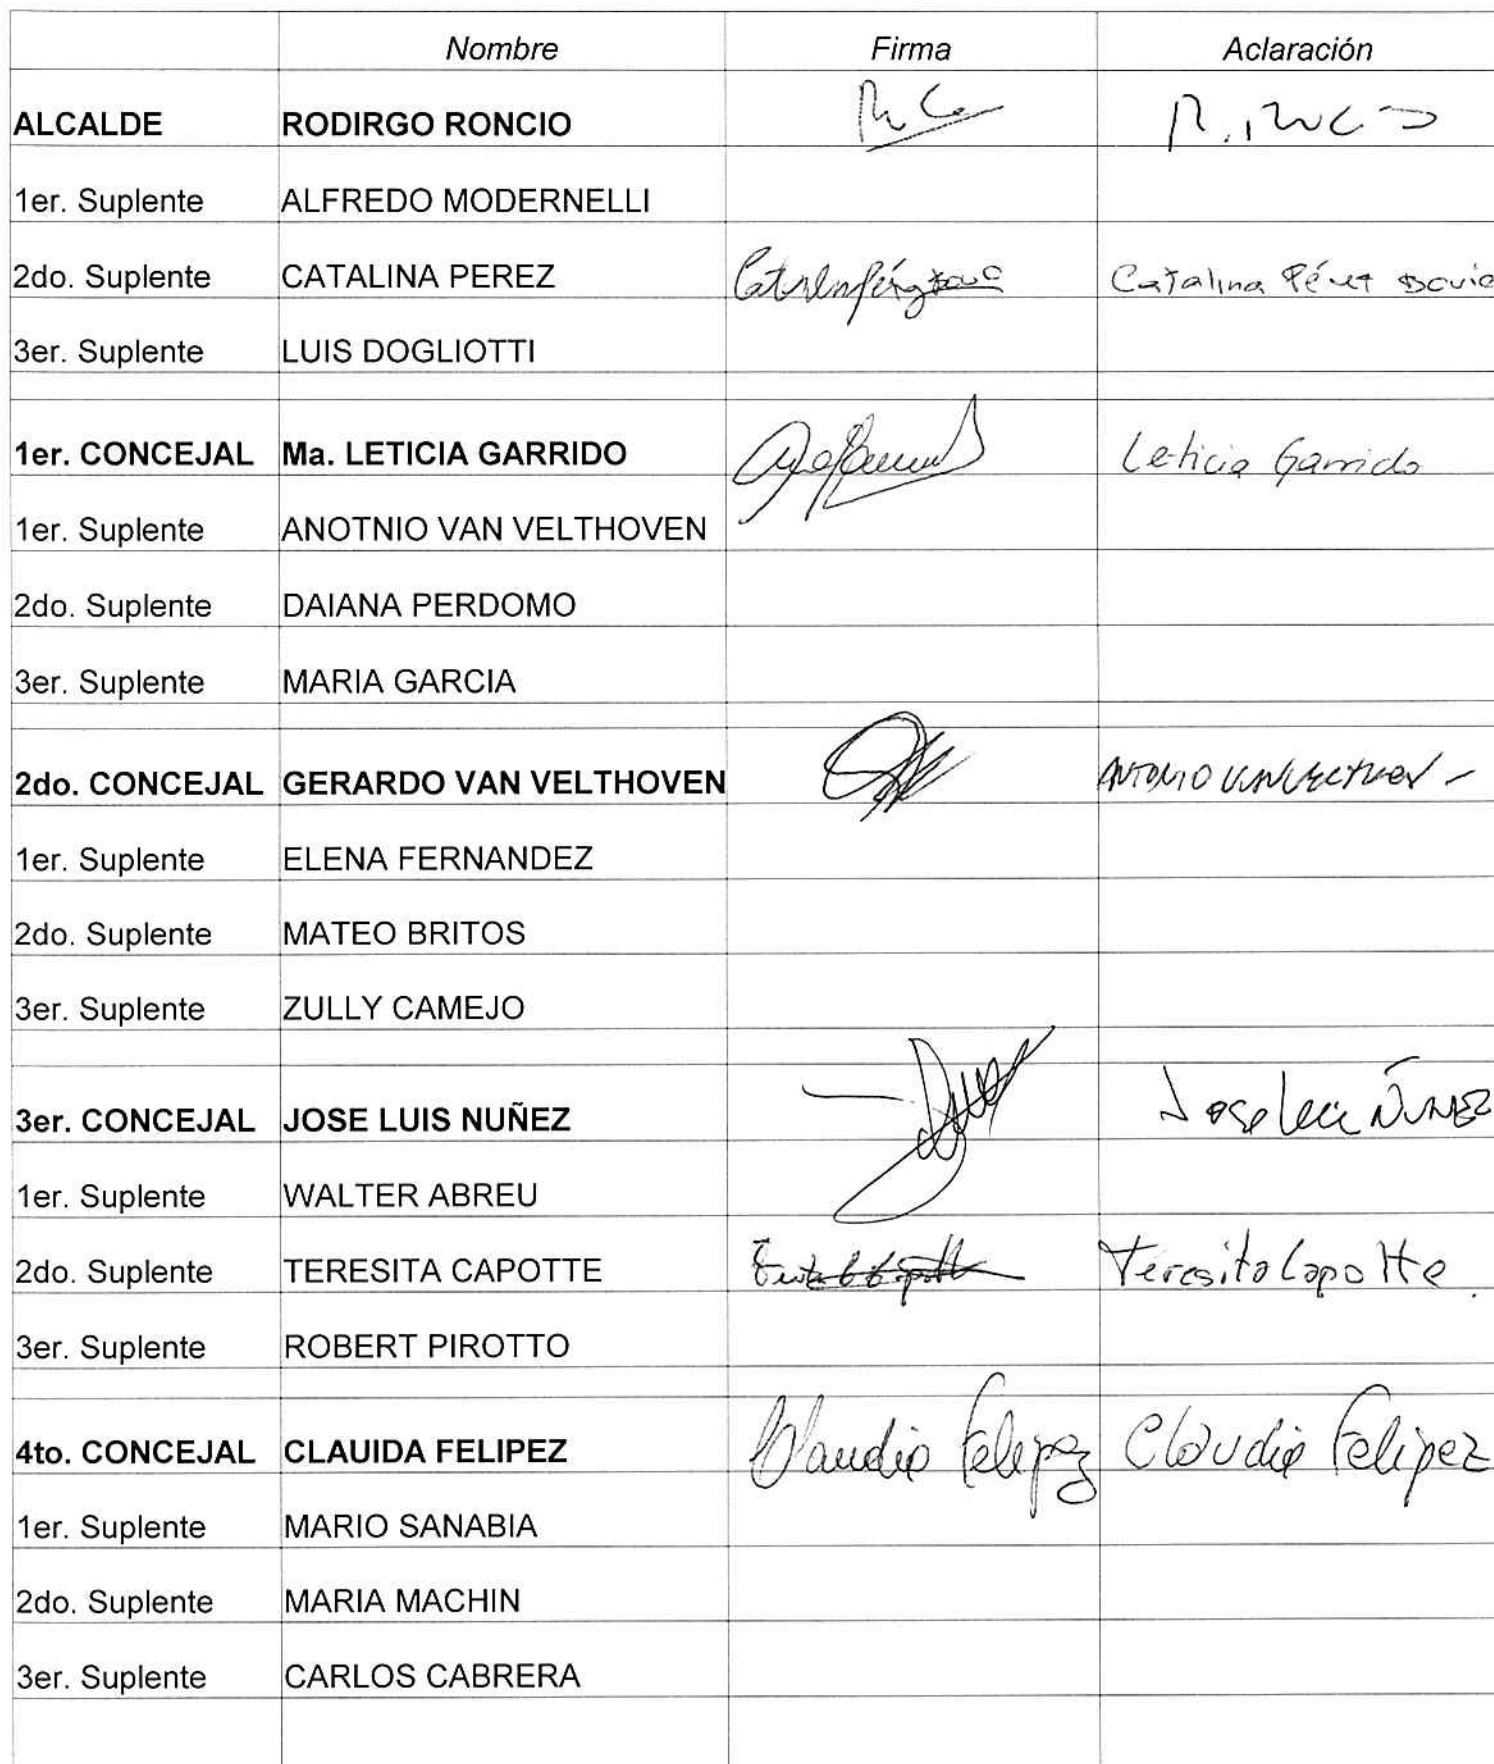 Nombre Firma Aclaración
ALCALDE RODIRGO RONCIO
1er. Suplente ALFREDO MODERNELLI
2do. Suplente CATALINA PEREZ Catalina Pérez
3er. Suplente LUIS DOGLIOTTI
1er. CONCEJAL Ma. LETICIA GARRIDO Leticia Garrido
1er. Suplente ANOTNIO VAN VELTHOVEN
2do. Suplente DAIANA PERDOMO
3er. Suplente MARIA GARCIA
2do. CONCEJAL GERARDO VAN VELTHOVEN ANTONIO VANVELTHOVEN -
1er. Suplente ELENA FERNANDEZ
2do. Suplente MATEO BRITOS
3er. Suplente ZULLY CAMEJO
3er. CONCEJAL JOSE LUIS NUÑEZ Jose Luis NUÑEZ
1er. Suplente WALTER ABREU
2do. Suplente TERESITA CAPOTTE Teresita Capotte.
3er. Suplente ROBERT PIROTTO
4to. CONCEJAL CLAUIDA FELIPEZ Claudia Felipez Claudia Felipez
1er. Suplente MARIO SANABIA
2do. Suplente MARIA MACHIN
3er. Suplente CARLOS CABRERA